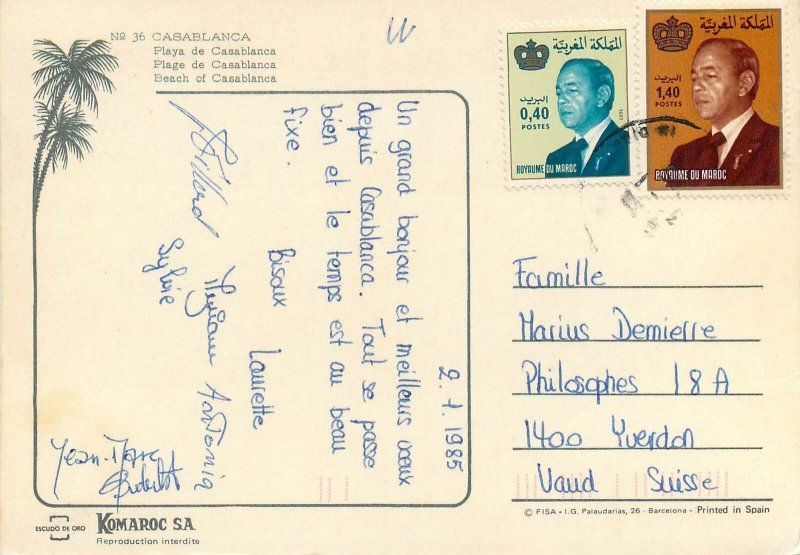 Nº 36 CASABLANCA
Playa de Casablanca
Plage de Casablanca
Beach of Casablanca
2.1.1985
Un grand bonjour et meilleurs vœux
depuis Casablanca. Tout se passe
bien et le temps est au beau
fixe.
Bisoux Laurette
Myriam Antonia
Sylvie
Jean-Marc
المملكة المغربية
البريد
0,40
POSTES
1981
ROYAUME DU MAROC
المملكة المغربية
البريد
1,40
POSTES
ROYAUME DU MAROC
Famille
Marius Demierre
Philosophes 18A
1400 Yverdon
Vaud Suisse
© FISA • I.G. Palaudarias, 26 - Barcelona - Printed in Spain
ESCUDO DE ORO
KOMAROC S.A.
Reproduction interdite